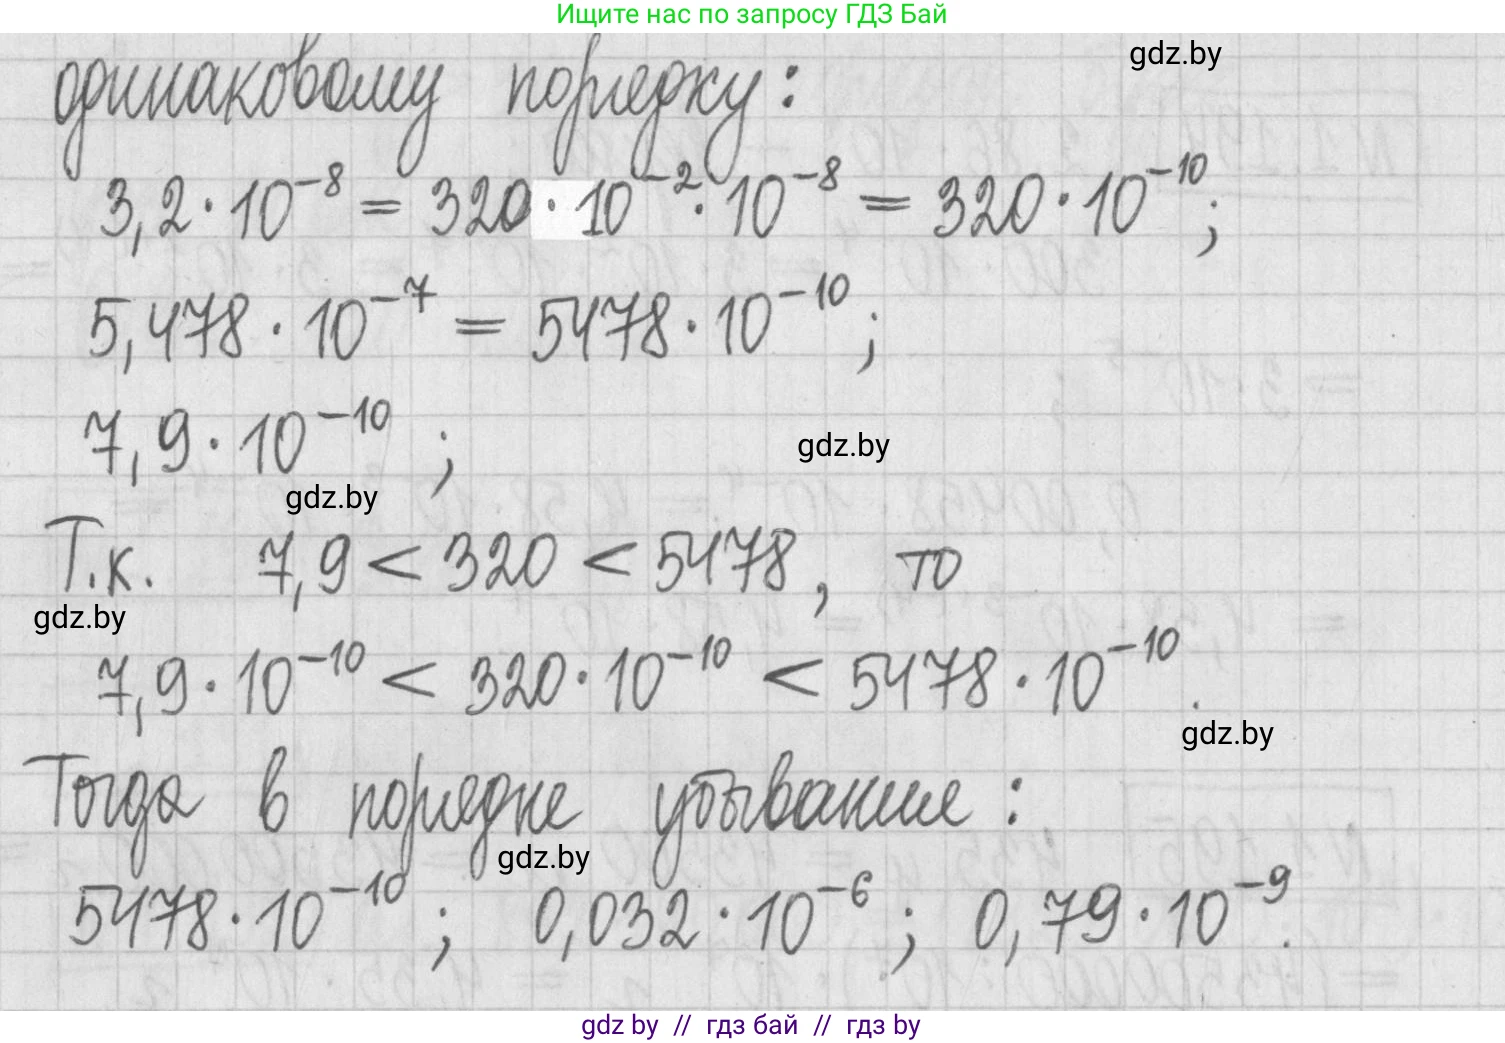 Ищите нас по запросу ГДЗ Бай
gdz.by
одинаковому порядку:
3,2·10⁻⁸ = 320·10⁻²·10⁻⁸ = 320·10⁻¹⁰;
5,478·10⁻⁷ = 5478·10⁻¹⁰;
7,9·10⁻¹⁰;
gdz.by
gdz.by
Т.к. 7,9 < 320 < 5478, то
gdz.by
7,9·10⁻¹⁰ < 320·10⁻¹⁰ < 5478·10⁻¹⁰.
gdz.by
Тогда в порядке убывания:
gdz.by
5478·10⁻¹⁰; 0,032·10⁻⁶; 0,79·10⁻⁹.
gdz by // гдз бай // гдз by